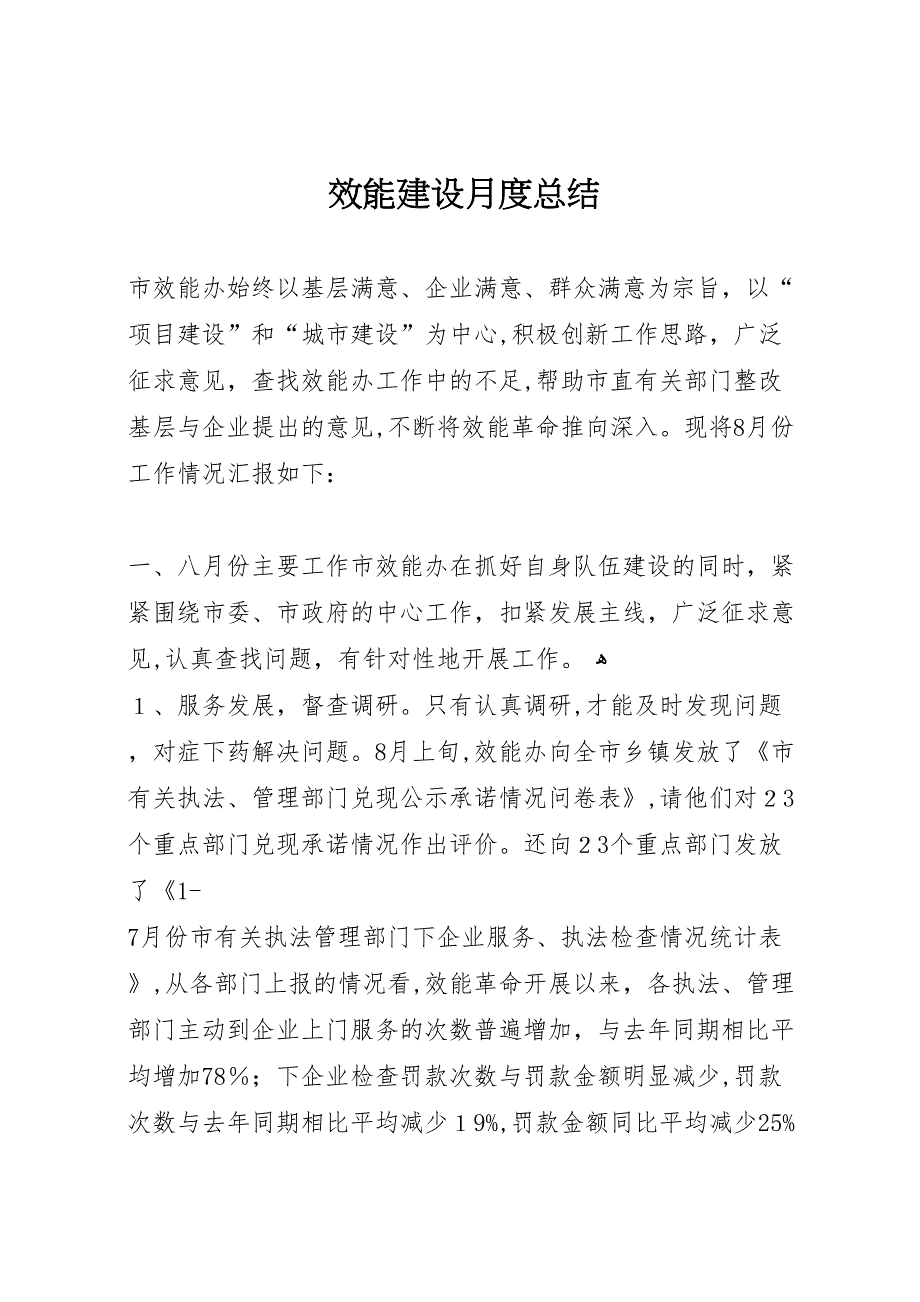 效能建设月度总结
市效能办始终以基层满意、企业满意、群众满意为宗旨，以“
项目建设”和“城市建设”为中心,积极创新工作思路，广泛
征求意见，查找效能办工作中的不足,帮助市直有关部门整改
基层与企业提出的意见,不断将效能革命推向深入。现将8月份
工作情况汇报如下：
一、八月份主要工作市效能办在抓好自身队伍建设的同时，紧
紧围绕市委、市政府的中心工作，扣紧发展主线，广泛征求意
见,认真查找问题，有针对性地开展工作。 ﻫ
１、服务发展，督查调研。只有认真调研,才能及时发现问题
，对症下药解决问题。8月上旬,效能办向全市乡镇发放了《市
有关执法、管理部门兑现公示承诺情况问卷表》,请他们对２3
个重点部门兑现承诺情况作出评价。还向２3个重点部门发放
了《1-
7月份市有关执法管理部门下企业服务、执法检查情况统计表
》,从各部门上报的情况看,效能革命开展以来，各执法、管理
部门主动到企业上门服务的次数普遍增加，与去年同期相比平
均增加78％；下企业检查罚款次数与罚款金额明显减少,罚款
次数与去年同期相比平均减少１9%,罚款金额同比平均减少25%